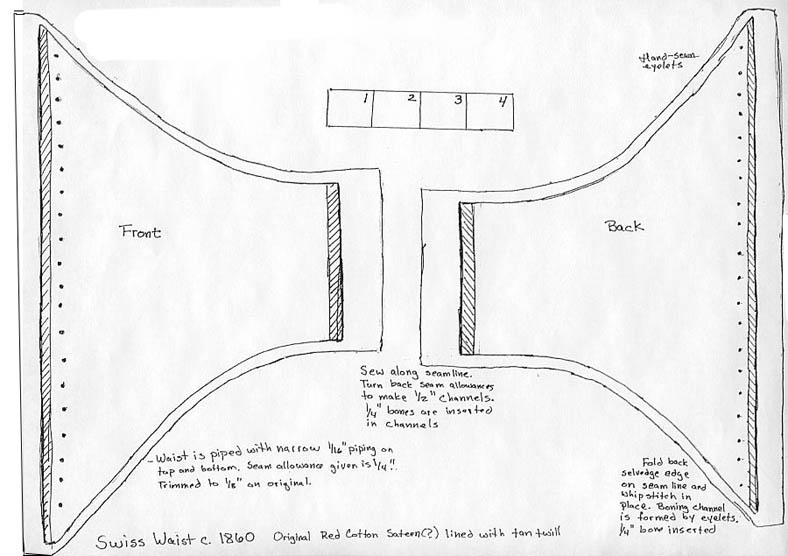 Hand-sewn
eyelets
1 2 3 4
Front
Back
Sew along seamline.
Turn back seam allowances
to make 1/2" channels.
1/4" bones are inserted
in channels
- Waist is piped with narrow 1/16" piping on
top and bottom. Seam allowance given is 1/4".
Trimmed to 1/8" on original.
Fold back
selvedge edge
on seam line and
whipstitch in
place. Boning channel
is formed by eyelets.
1/4" bone inserted
Swiss Waist c. 1860 Original Red Cotton Sateen(?) lined with tan twill